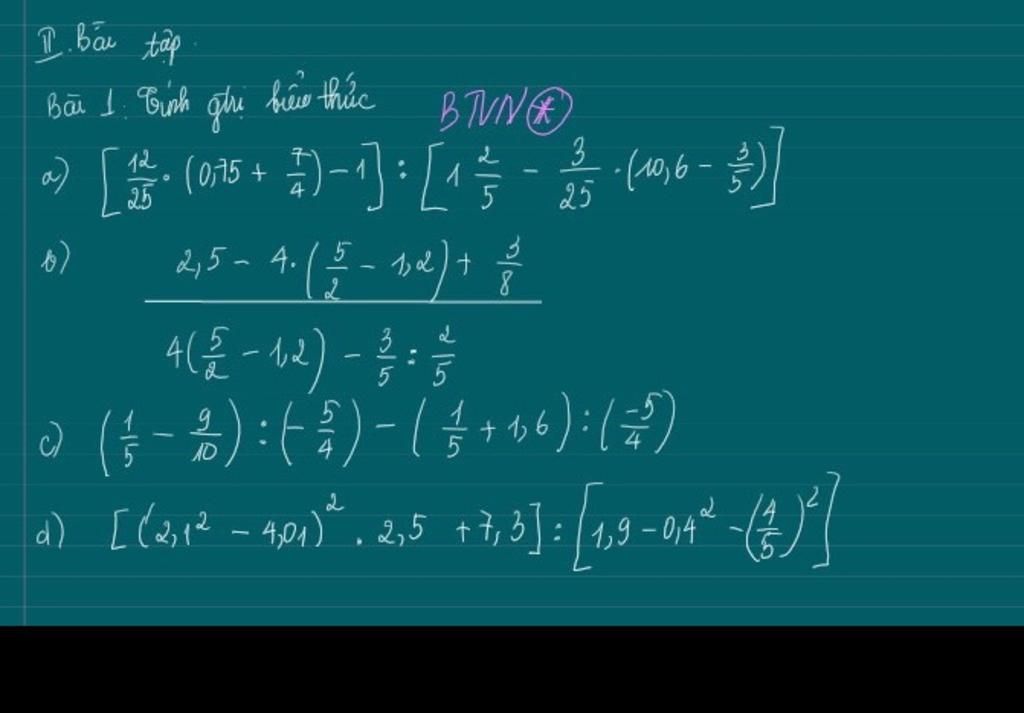 II. Bài tập.
Bài 1. Tính gtrị biểu thức BTVN *
a) [12/25 . (0,75 + 7/4) - 1] : [1 2/5 - 3/25 . (10,6 - 3/5)]
b) (2,5 - 4.(5/2 - 1,2) + 3/8) / (4(5/2 - 1,2) - 3/5 : 2/5)
c) (1/5 - 9/10) : (-5/4) - (1/5 + 1,6) : (-5/4)
d) [(2,1² - 4,01)² . 2,5 + 7,3] : [1,9 - 0,4² - (4/5)²]